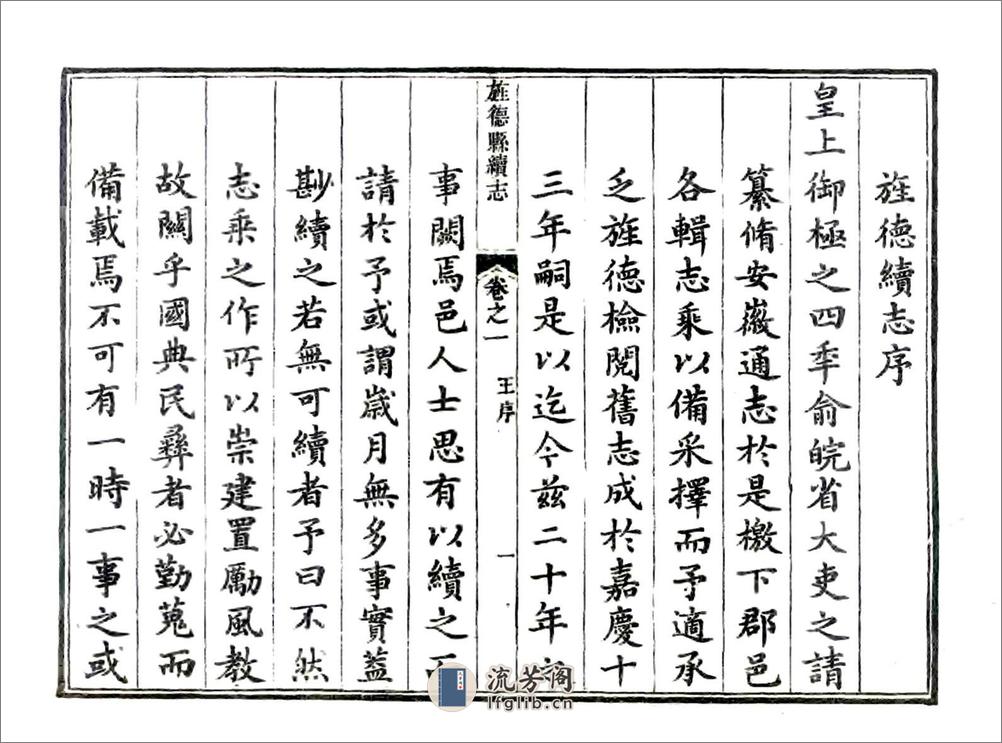 旌德續志序
皇上御極之四秊俞皖省大吏之請
纂脩安徽通志於是檄下郡邑
各輯志乘以備采擇而予適承
乏旌德檢閱舊志成於嘉慶十
三年嗣是以迄今茲二十年
旌德縣續志 卷之一 王序 一
事闕焉邑人士思有以續之
請於予或謂歲月無多事實蓋
尠續之若無可續者予曰不然
志乘之作所以崇建置勵風教
故關乎國典民彝者必勤蒐而
備載焉不可有一時一事之或
流芳阁
lfglib.cn